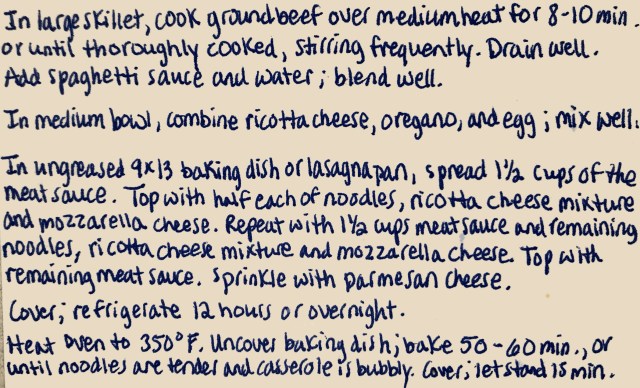 In large skillet, cook ground beef over medium heat for 8-10 min.
or until thoroughly cooked, stirring frequently. Drain well.
Add spaghetti sauce and water; blend well.
In medium bowl, combine ricotta cheese, oregano, and egg; mix well.
In ungreased 9x13 baking dish or lasagna pan, spread 1½ cups of the
meat sauce. Top with half each of noodles, ricotta cheese mixture
and mozzarella cheese. Repeat with 1½ cups meat sauce and remaining
noodles, ricotta cheese mixture and mozzarella cheese. Top with
remaining meat sauce. Sprinkle with parmesan cheese.
Cover; refrigerate 12 hours or overnight.
Heat oven to 350°F. Uncover baking dish; bake 50-60 min., or
until noodles are tender and casserole is bubbly. Cover; let stand 15 min.